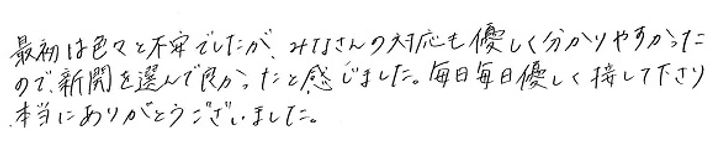 最初は色々と不安でしたが、みなさんの対応も優しく分かりやすかった
ので、新開を選んで良かったと感じました。毎日毎日優しく接して下さり
本当にありがとうございました。